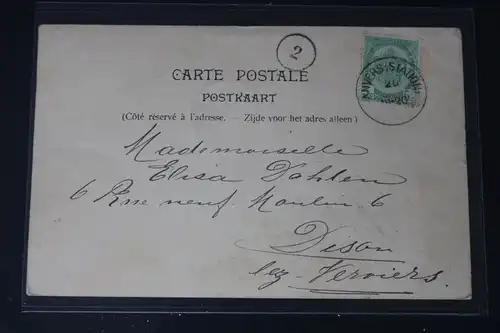 2
CARTE POSTALE
POSTKAART
(Côté réservé à l'adresse. — Zijde voor het adres alleen)
ANVERS (STATION)
20
Mademoiselle
Elisa Dahlen
6 Rue neuf Moulin 6
Dison
lez-Verviers.